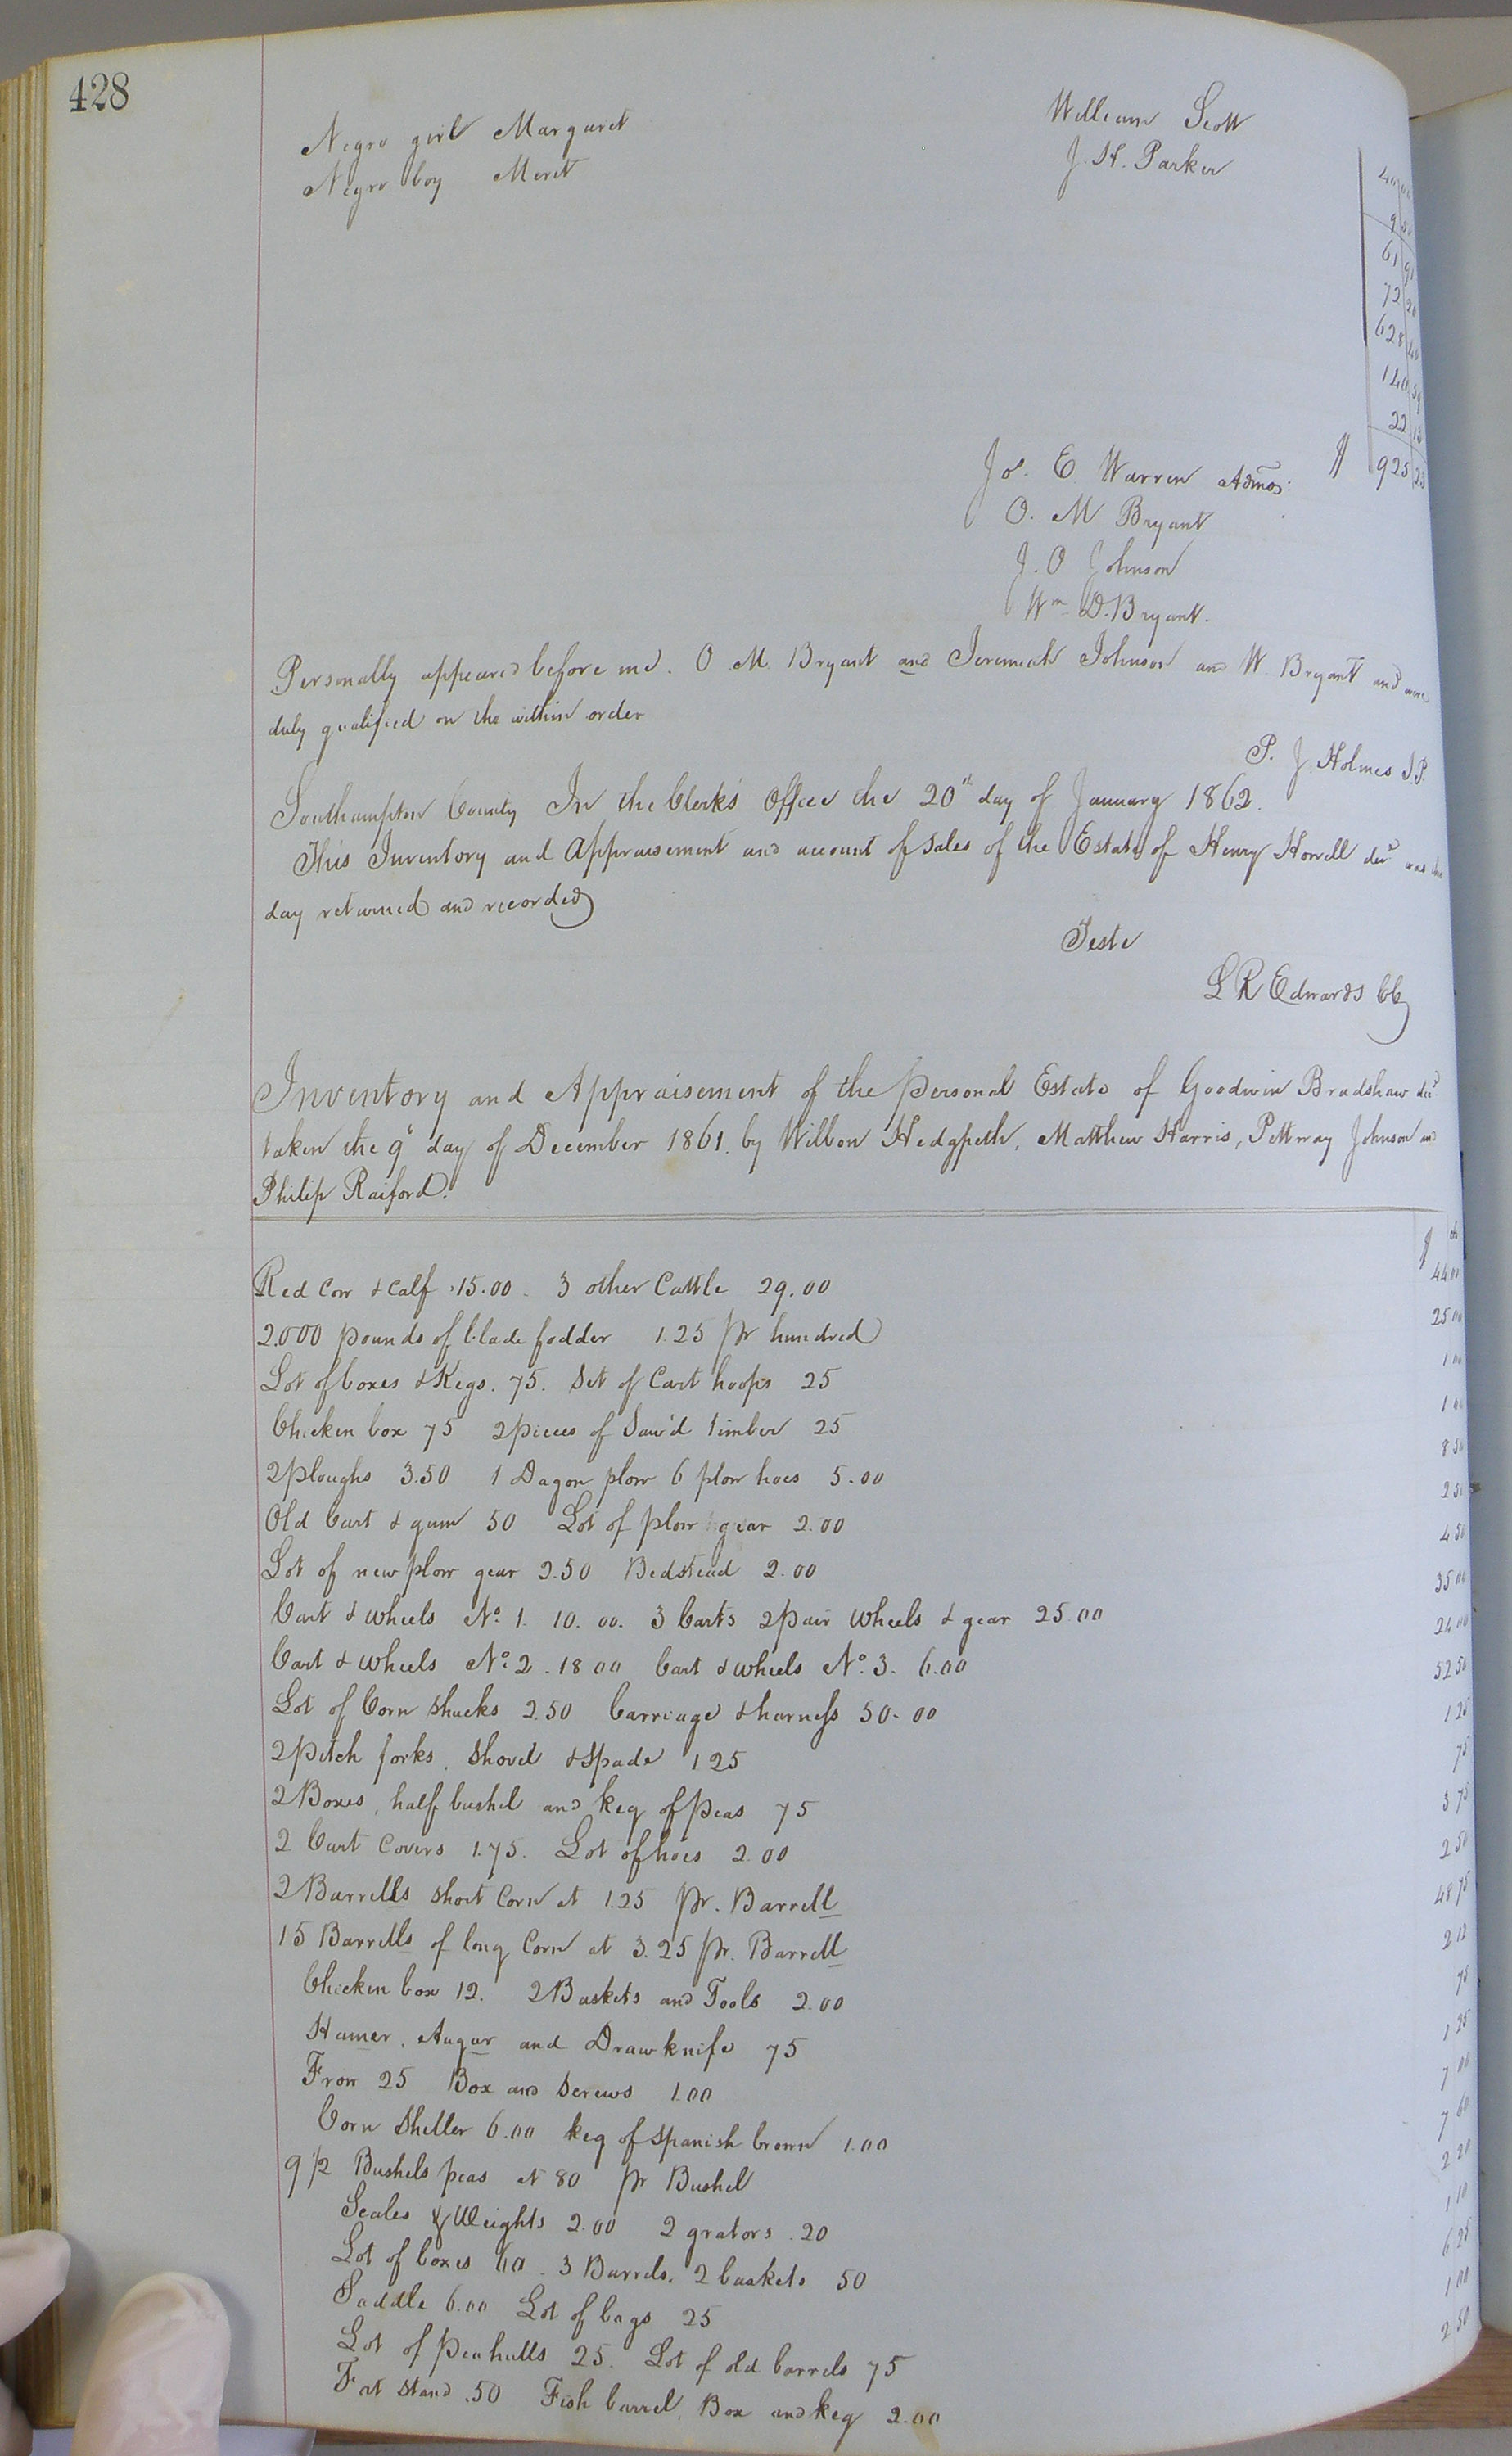 428
Negro girl Margaret William Scott
Negro boy Merit J. H. Parker
9 50
61 91
72 20
628 40
140 59
22 13
Jos. E. Warren Admor: $ 925 23
O. M Bryant
J. O Johnson
Wm D. Bryant.
Personally appeared before me. O. M. Bryant and Jeremiah Johnson and W. Bryant and were
duly qualified on the within order
P. J. Holmes J.P.
Southampton County In the Clerk's Office the 20th day of January 1862.
This Inventory and Appraisement and account of sales of the Estate of Henry Howell decd was this
day returned and recorded
Teste
L R Edwards CC
Inventory and Appraisement of the Personal Estate of Goodwin Bradshaw decd
taken the 9th day of December 1861. by Wilbon Hedgpeth, Matthew Harris, Pettway Johnson and
Philip Raiford.
$ cts
Red Cow & Calf 15.00. 3 other Cattle 29.00 44 00
2.000 pounds of blade fodder 1.25 pr hundred 25 00
Lot of boxes & Kegs. 75. Set of Cart hoops 25 1 00
Chicken box 75 2 pieces of Saw'd timber 25 1 00
2 Ploughs 3.50 1 Dagon plow 6 plow hoes 5.00 8 50
Old Cart & gum 50 Lot of plow gear 2.00 2 50
Lot of new plow gear 2.50 Bedstead 2.00 4 50
Cart & wheels No. 1. 10.00. 3 Carts 2 pair wheels & gear 25.00 35 00
Cart & wheels No. 2. 18 00 Cart & wheels No. 3. 6.00 24 00
Lot of Corn shucks 2.50 Carriage & harness 50.00 52 50
2 pitch forks, Shovel & Spade 1.25 1 25
2 Boxes, half bushel and keg of peas 75 75
2 Cart Covers 1.75. Lot of hoes 2.00 3 75
2 Barrells short Corn at 1.25 pr. Barrell 2 50
15 Barrells of long Corn at 3.25 pr. Barrell 48 75
Chicken box 12. 2 Baskets and Tools 2.00 2 12
Hamer, Augur and Drawknife 75 75
Frow 25 Box and Screws 1.00 1 25
Corn Sheller 6.00 keg of Spanish brown 1.00 7 00
9 1/2 Bushels peas at 80 pr Bushel 7 60
Scales & Weights 2.00 2 grators .20 2 20
Lot of boxes 60. 3 Barrels, 2 baskets 50 1 10
Saddle 6.00 Lot of bags 25 6 25
Lot of Pea hulls 25. Lot of old barrels 75 1 00
Fat Stand .50 Fish barrel, Box and keg 2.00 2 50